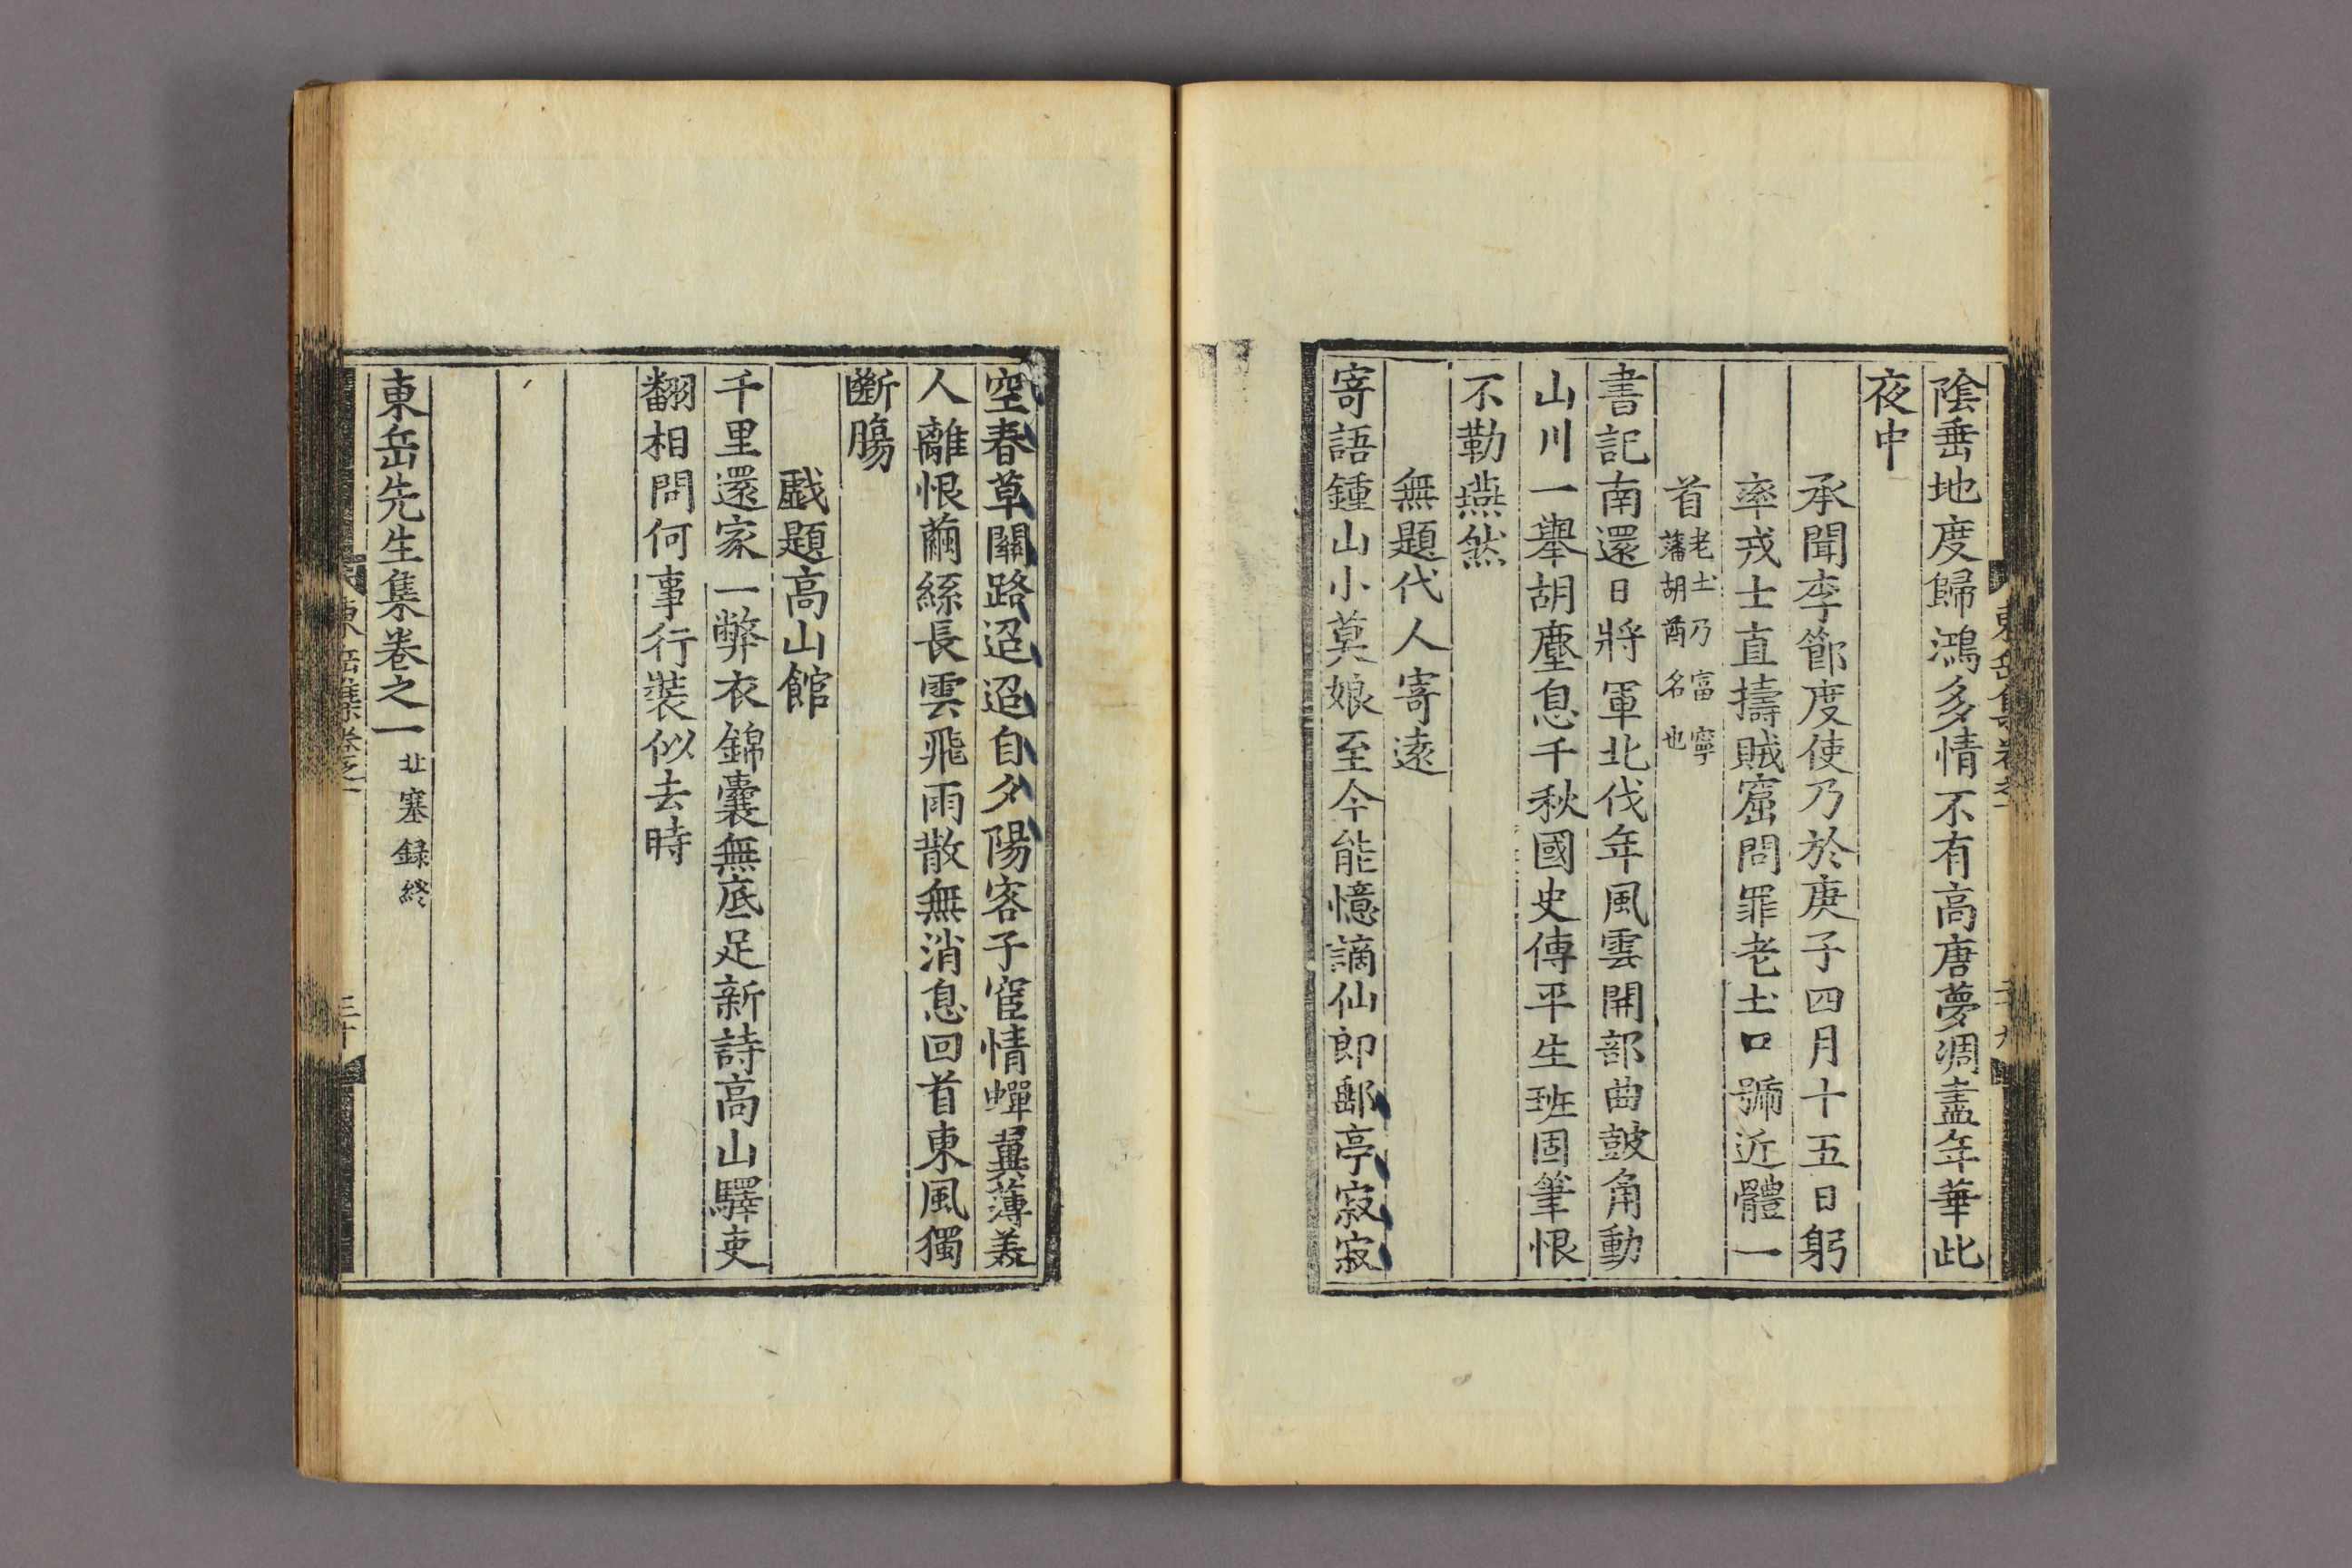 陰垂地度歸鴻多情不有高唐夢凋盡年華此
夜中
承聞李節度使乃於庚子四月十五日躬
率戎士直擣賊窟問罪老土口號近體一
首老土乃富寧
藩胡酋名也
書記南還日將軍北伐年風雲開部曲鼓角動
山川一擧胡塵息千秋國史傳平生班固筆恨
不勒燕然
無題代人寄遠
寄語鍾山小莫娘至今能憶謫仙郎郵亭寂寂
空春草關路迢迢自夕陽客子宦情蟬翼薄美
人離恨繭絲長雲飛雨散無消息回首東風獨
斷膓
戱題高山館
千里還家一弊衣錦囊無底足新詩高山驛吏
翻相問何事行裝似去時
東岳先生集卷之一 北塞録終
東岳集卷之一
三十